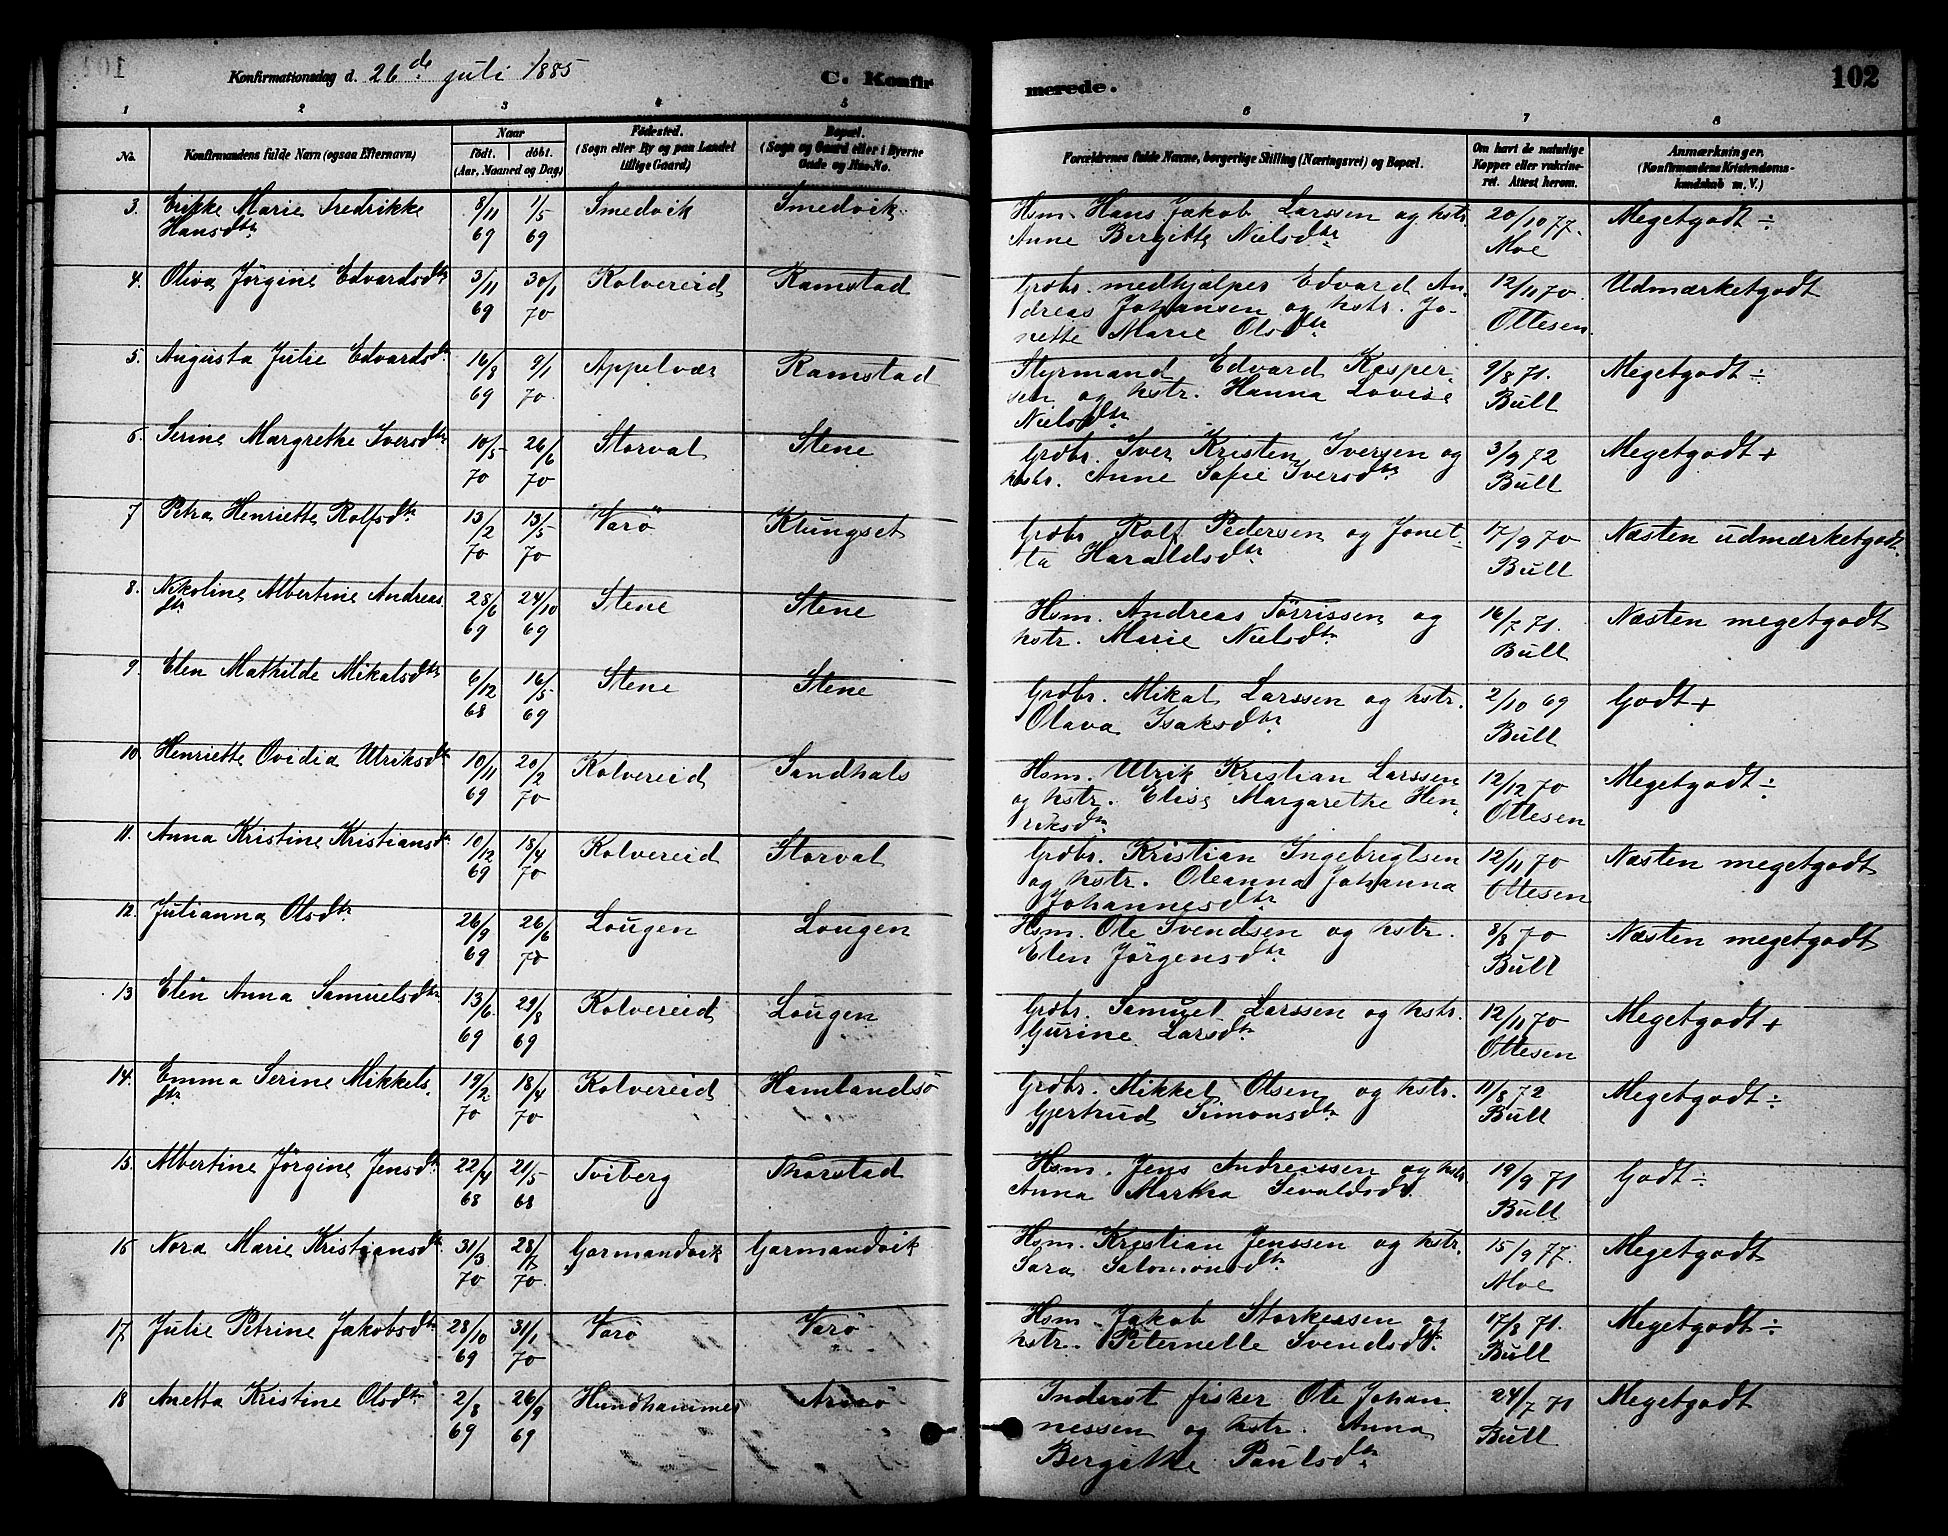 Konfirmationsdag d. 26de juli 1885 C. Konfirmerede. 102
1 2 3 4 5 6 7 8
No. Konfirmandens fulde Navn (ogsaa Efternavn) Naar født. døbt. (Aar, Maaned og Dag) Fødested. (Sogn eller By og paa Landet tillige Gaard) Bopæl. (Sogn og Gaard eller i Byerne Gade og Hus-No. Forældrenes fulde Navne, borgerlige Stilling (Næringsvei) og Bopæl. Om havt de naturlige Kopper eller vaccineret. Attest herom. Anmærkninger, (Konfirmandens Kristendomskundskab m. V.)
3. Erikke Marie Fredrikke 8/11 1/5 Smedvik Smedvik Hsm. Hans Jakob Larssen og hstr. 20/10 77. Megetgodt ÷
Hansdtr 69 69 Anne Bergitte Nielsdtr Moe
4. Oliva Jørgine Edvardsdtr 3/11 30/1 Kolvereid Ramstad Grdbr. medhjælper Edvard An- 12/11 70. Udmærketgodt
69 70 dreas Johansen og hstr. Jo- Ottesen
nette Marie Olsdtr
5. Augusta Julie Edvardsdtr 16/8 9/1 Appelvær Ramstad Styrmand Edvard Kasper- 9/8 71. Megetgodt ÷
69 70 sen og hstr. Hanna Lovise Bull
Nielsdtr
6. Serine Margrethe Iversdtr 10/5 26/6 Storval Stene Grdbr. Iver Kristen Iversen og 3/9 72 Megetgodt +
70 70 hstr. Anne Sofie Iversdtr Bull
7 Petra Henriette Rolfsdtr 13/2 13/5 Varø Klungset Grdbr Rolf Pedersen og Jonet- 17/9 70 Næsten udmærketgodt
70 70 ta Haraldsdtr Bull
8. Nikoline Albertine Andreas 28/6 24/10 Stene Stene Hsm. Andreas Tørrissen og 16/7 71. Næsten megetgodt
dtr 69 69 hstr. Marie Nielsdtr Bull
9. Elen Mathilde Mikalsdtr 6/12 16/5 Stene Stene Grdbr. Mikal Larssen og hstr. 2/10 69 Godt +
68 69 Olava Isaksdtr Bull
10. Henriette Ovidia Ulriksdtr 10/11 20/2 Kolvereid Sandhals Hsm. Ulrik Kristian Larssen 12/12 70 Megetgodt ÷
69 70 og hstr. Elise Margarethe Hen- Ottesen
riksdtr
11. Anna Kristine Kristiansdtr 10/12 18/4 Kolvereid Storval Grdbr. Kristian Ingebregtsen 12/11 70 Næsten megetgodt
69 70 og hstr. Oleanna Johanna Ottesen
Johannesdtr
12. Julianna Olsdtr 26/9 26/6 Lougen Lougen Hsm. Ole Svendsen og hstr. 8/8 70 Næsten megetgodt
69 70 Elen Jørgensdtr Bull
13 Elen Anna Samuelsdtr 13/6 29/8 Kolvereid Lougen Grdbr. Samuel Larssen og hstr. 12/11 70 Megetgodt +
69 69 Gurine Larsdtr Ottesen
14. Emma Serine Mikkels 19/2 18/4 Kolvereid Hamlandsø Grdbr. Mikkel Olsen og hstr. 11/8 72 Megetgodt ÷
dtr 70 70 Gjertrud Simonsdtr Bull
15. Albertine Jørgine Jensdtr 22/4 21/5 Tviberg Thorstad Hsm. Jens Andreassen og hstr 19/9 71 Godt ÷
68 68 Anna Martha Sivaldsdtr. Bull
16 Nora Marie Kristiansdtr 31/3 28/7 Garmandvik Garmandvik Hsm. Kristian Jenssen og hstr. 15/9 77. Megetgodt
70 70. Sara Salomonsdtr Moe
17 Julie Petrine Jakobsdtr 28/10 31/1 Varø Varø Hsm. Jakob Storkersen og 17/8 71. Megetgodt ÷
69 70 hstr. Peternelle Svendsdtr. Bull
18 Anetta Kristine Olsdtr 2/8 26/9 Hundhammer Inderst fisker Ole Johan- 24/7 71 Megetgodt
69 69 nessen og hstr. Anna Bull
Bergithe Paulsdtr